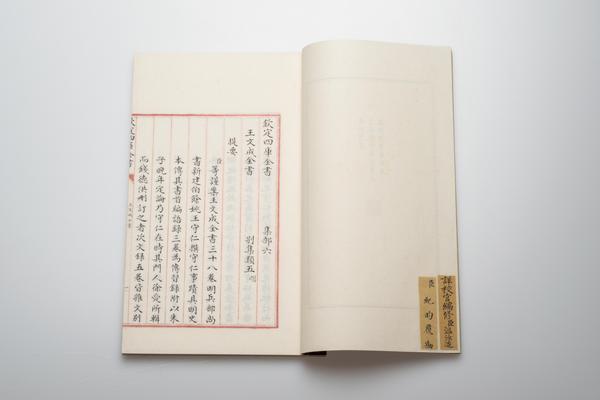 詳校官編修臣溫汝适
臣紀昀覆勘
欽定四庫全書 集部六
王文成全書 別集類五 明
提要
臣等謹案王文成全書三十八卷明兵部尚
書新建伯餘姚王守仁撰守仁事蹟具明史
本傳其書首編語錄三卷為傳習錄附以朱
子晚年定論乃守仁在時其門人徐愛所輯
而錢德洪刪訂之者次文錄五卷皆雜文別
欽定四庫全書